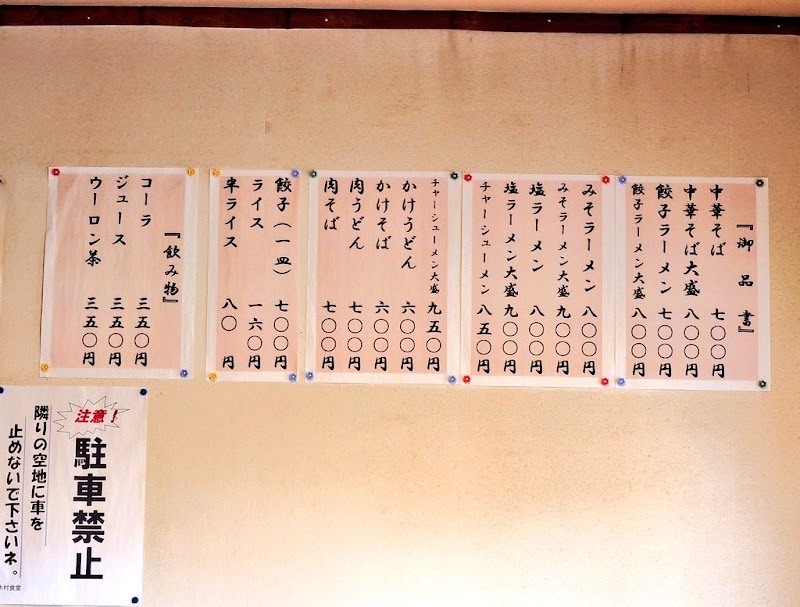 『御品書』
中華そば 七〇〇円
中華そば大盛 八〇〇円
餃子ラーメン 七〇〇円
餃子ラーメン大盛 八〇〇円
みそラーメン 八〇〇円
みそラーメン大盛 九〇〇円
塩ラーメン 八〇〇円
塩ラーメン大盛 九〇〇円
チャーシューメン 八五〇円
チャーシューメン大盛 九五〇円
かけうどん 六〇〇円
かけそば 六〇〇円
肉うどん 七〇〇円
肉そば 七〇〇円
餃子(一皿) 七〇〇円
ライス 一六〇円
半ライス 八〇円
『飲み物』
コーラ 三五〇円
ジュース 三五〇円
ウーロン茶 三五〇円
注意!
駐車禁止
隣りの空地に車を
止めないで下さいネ。
木村食堂